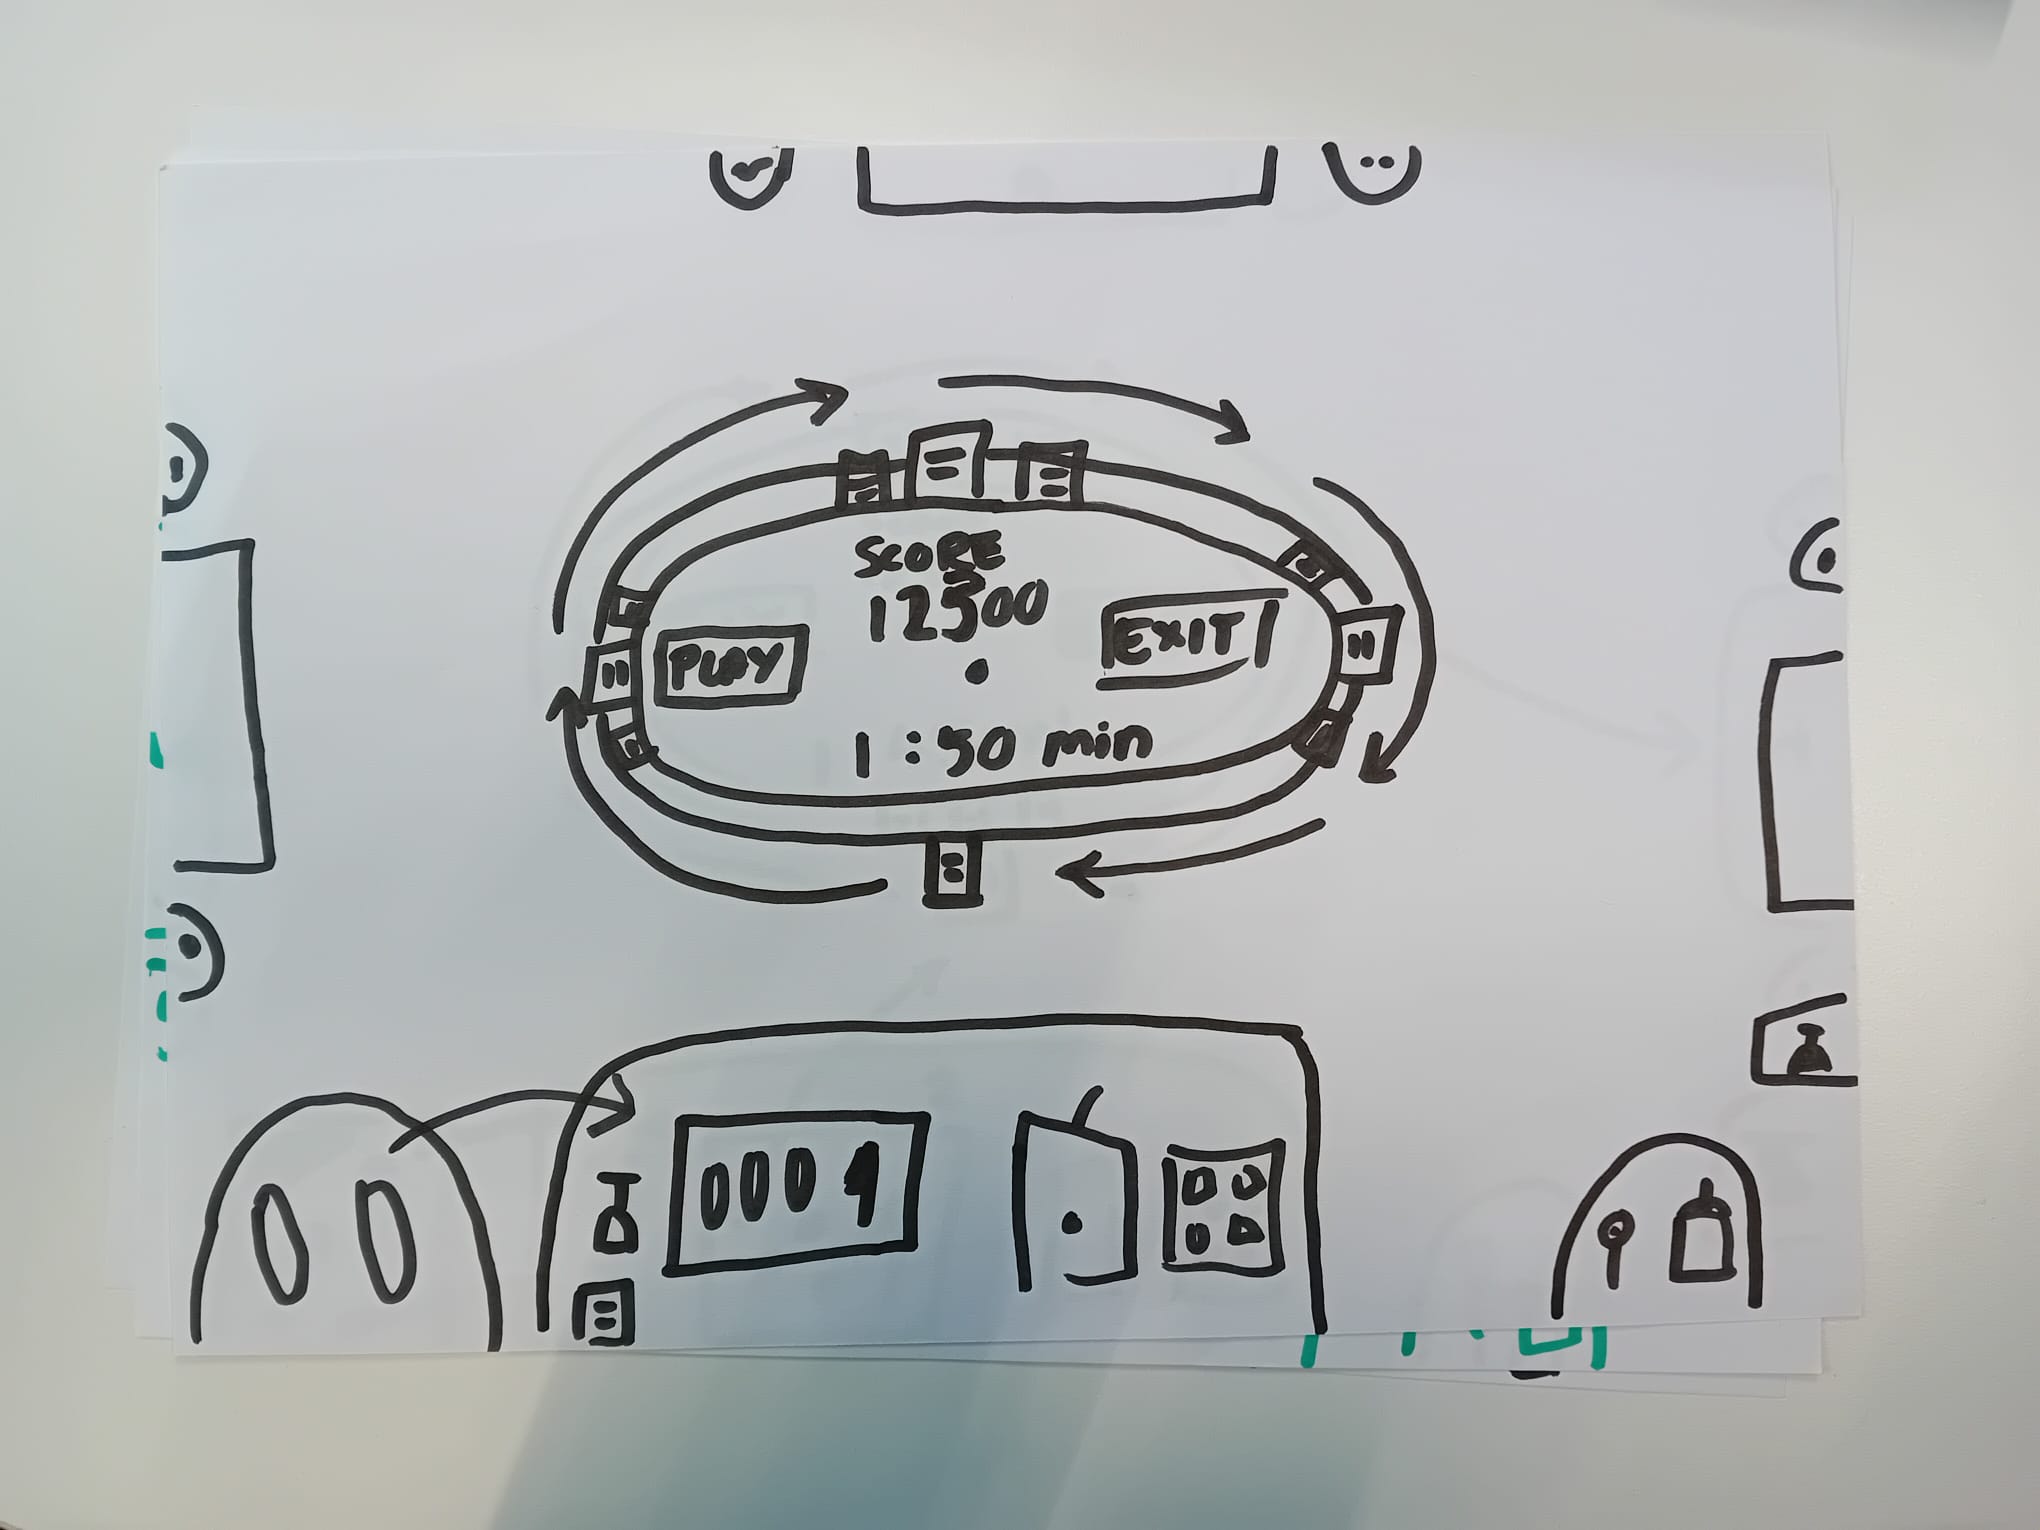 SCORE
12500
PLAY
EXIT
1:50 min
0001